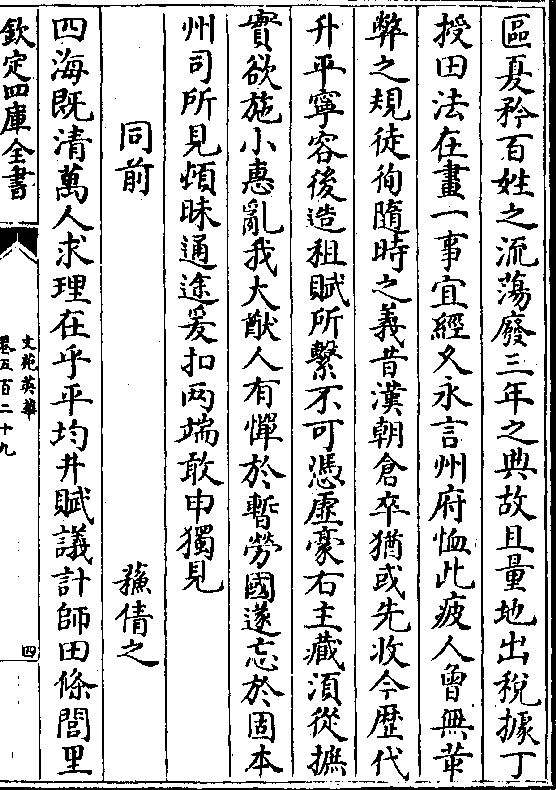 區夏矜百姓之流蕩廢三年之典故且量地出稅據丁
授田法在畫一事宜經久永言州府恤此疲人曾無革
弊之規徒徇隨時之義昔漢朝倉卒猶或先收今歴代
升平寧容後造租賦所繫不可憑虛豪右主藏湏從摭
實欲施小惠亂我大猷人有憚於暫勞國遂忘於固本
州司所見煩昧通途爰扣兩端敢申獨見
同前
蘓倩之
四海既清萬人求理在乎平均井賦議計師田條閭里
欽定四庫全書
文苑英華
卷五百二十九
四